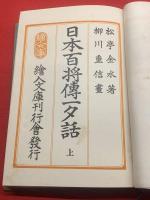 松亭金水著
柳川重信畫
日本百將傳一夕話
上
繪入文庫刊行會發行